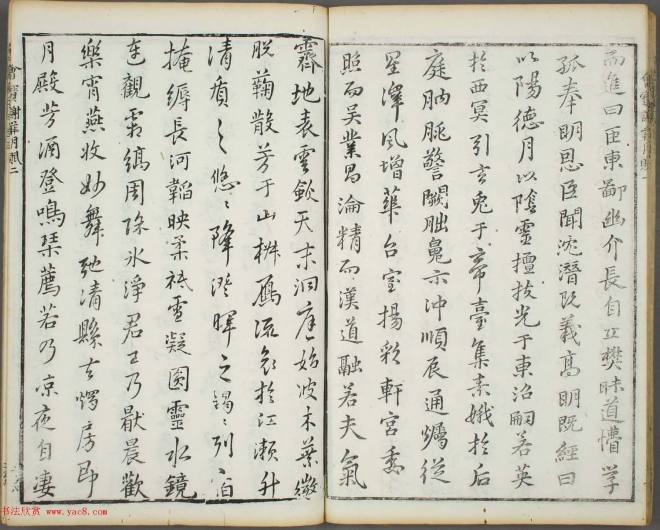 而進曰臣東鄙幽介長自丘樊昧道懵學
孤奉明恩臣聞沈潛既義高明既經日
以陽德月以陰靈擅扶光于東沼嗣若英
於西冥引玄兔于帝臺集素娥於后
庭朒朓警闕朏魄示沖順辰通燭從
星澤風增華台室揚彩軒宮委
照而吳業昌淪精而漢道融若夫氣
霽地表雲斂天末洞庭始波木葉微
脫菊散芳于山椒雁流哀於江瀨升
清質之悠悠降澄暉之藹藹列宿
掩縟長河韜映柔祇雪凝圓靈水鏡
連觀霜縞周除冰淨君王乃厭晨歡
樂宵燕收妙舞弛清縣去燭房即
月殿芳酒登鳴琴薦若乃涼夜自淒
謝莊月賦二
书法欣赏 www.yac8.com